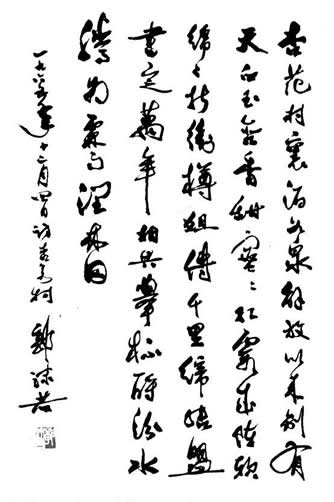 杏花村裏酒如泉解放以来别有
天白玉含香甜蜜々红霞成阵软
绵々折衝樽俎傳千里缔结盟
書定萬年相共舉杯酹汾水
腾为霖雨润林田
一九六五年十二月四日访杏花村 郭沫若